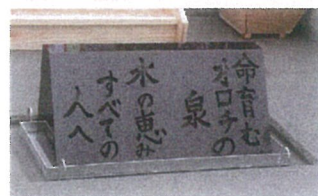 命育む
水口チの
泉
水の恵み
すべての
人へ